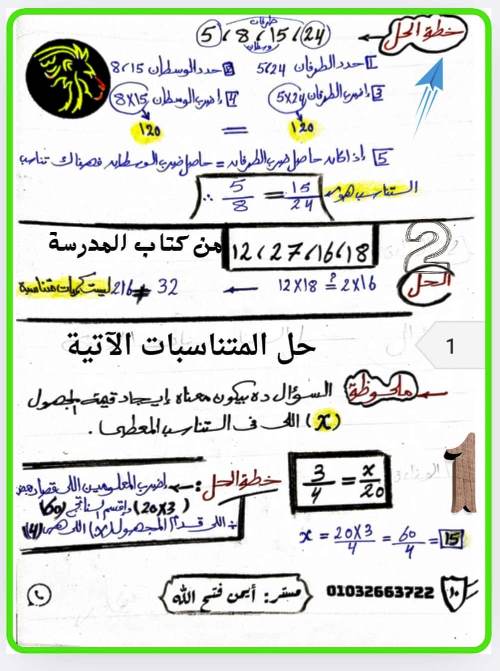 طرفان
5 ، 8 ، 15 ، 24
خطة الحل
وسطان
1 حدد الطرفان 5 ، 24
2 حدد الوسطان 8 ، 15
3 اضرب الطرفان 5×24
4 اضرب الوسطان 8×15
120 = 120
5 إذا كان حاصل ضرب الطرفان = حاصل ضرب الوسطان فهناك تناسب
التناسب هو
∴ 5/8 = 15/24
2
12 ، 27 ، 16 ، 18
من كتاب المدرسة
الحل
12×18 ≟ 2×16
216 ≠ 32 ليست كميات متناسبة
1
حل المتناسبات الآتية
ملحوظة
السؤال ده بيكون معناه إيجاد قيمة المجهول
(x) اللى فى التناسب المعطى.
1
3/4 = x/20
خطة الحل: اضرب المعلومين اللى قصاد بعض
(20×3) واقسم الناتج (60)
÷ اللى قدام المجهول (x) اللى هى (4)
x = 20×3/4 = 60/4 = 15
مستر: أيمن فتح الله
01032663722
١٠